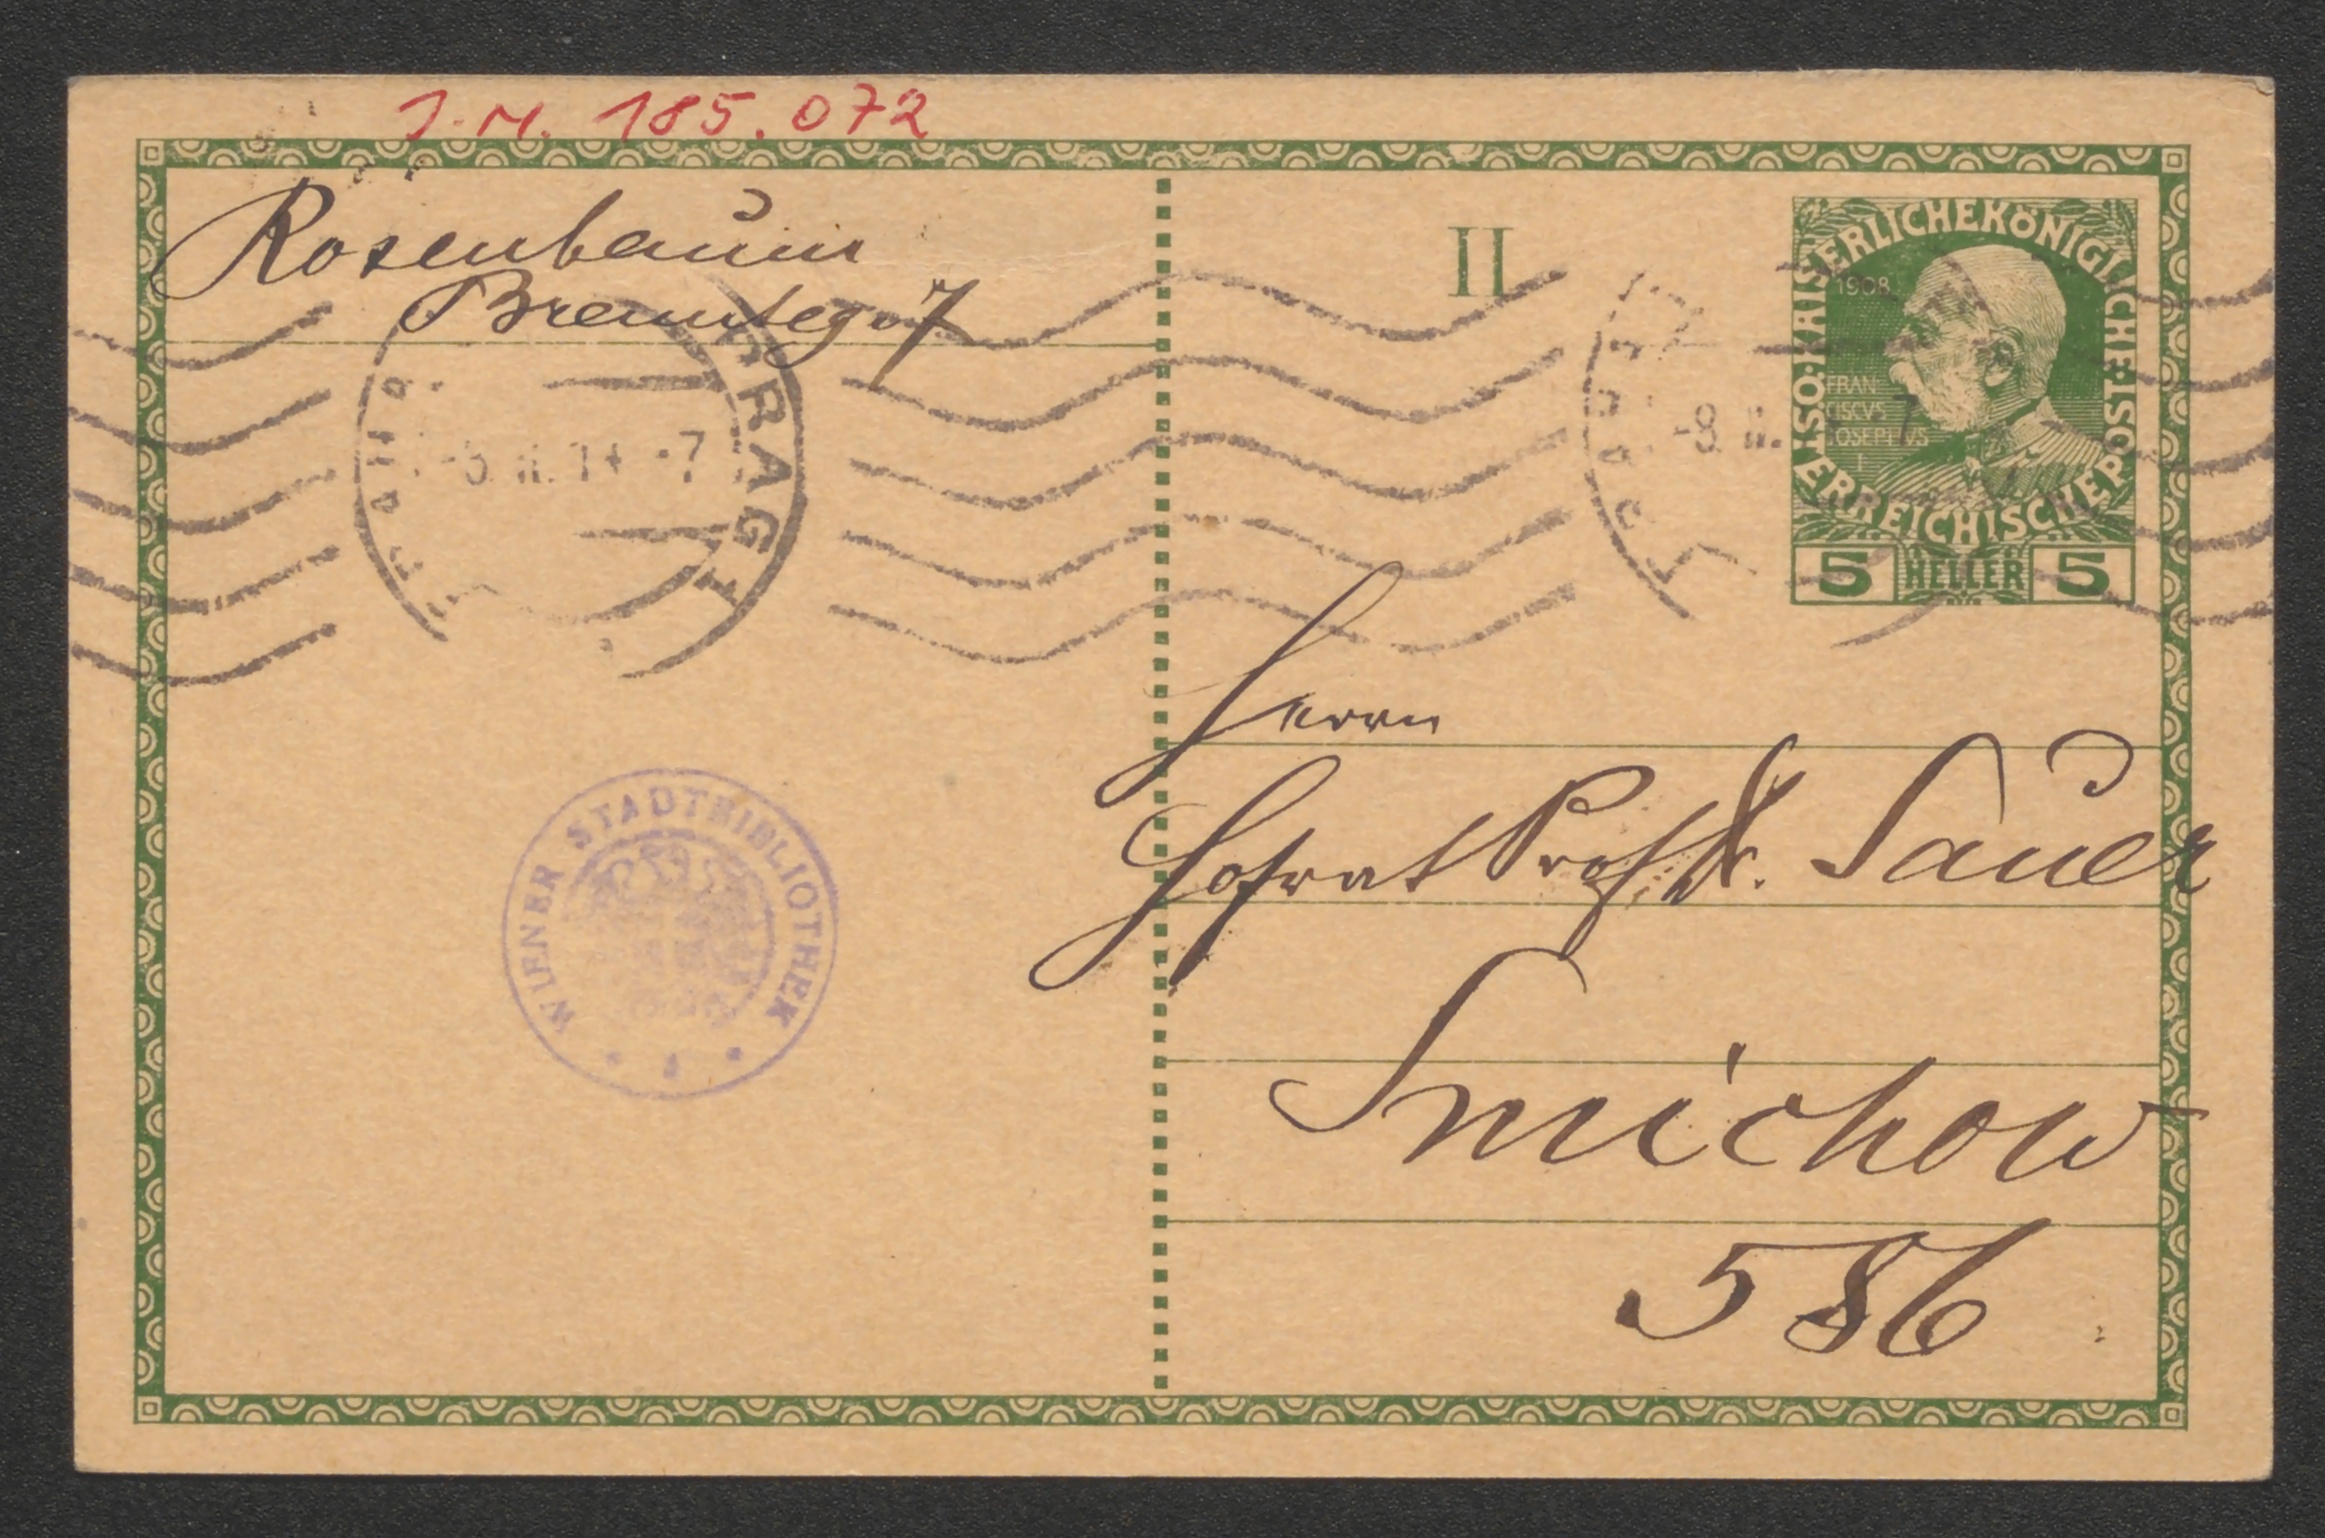 J.N. 185.072
Rosenbaum
Brennteg. 7
II
KAISERLICHE KÖNIGLICHE
ÖSTERREICHISCHE POST
1908
FRAN
CISCVS
IOSEPHVS
I
5 HELLER 5
PRAG 1
PRAHA
-8.II.14 -7
-8.II.
7
Herrn
Hofrat Prof. Dr. Sauer
Smichow
586
WIENER STADTBIBLIOTHEK